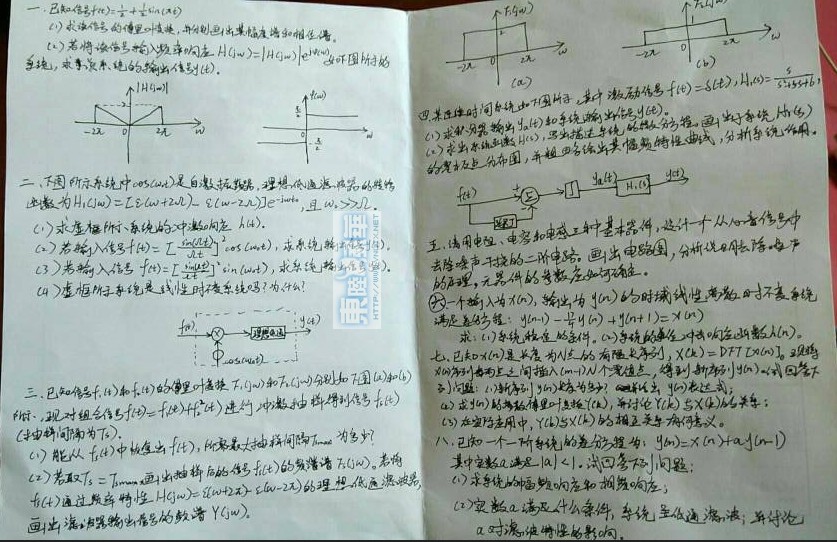 一、已知信号f(t)=½+½sin(πt)
(1) 求该信号的傅里叶变换,并分别画出其幅度谱和相位谱。
(2) 若将该信号输入频率响应H(jω)=|H(jω)|e^jφ(ω) 如下图所示的
系统,求系统的输出信号y(t)。
|H(jω)|
φ(ω)
-2π 0 2π ω
0 ω
二、下图所示系统中cos(ω₀t)是自激振荡器,理想低通滤波器的转移
函数为H₁(jω)=[ε(ω+2Ω)-ε(ω-2Ω)]e^-jωt₀,且ω₀>>Ω。
(1) 求虚框所示系统的冲激响应h(t)。
(2) 若输入信号f(t)=[sin(Ωt)/Ωt]²cos(ω₀t),求系统输出信号y(t)。
(3) 若输入信号f(t)=[sin(Ωt)/Ωt]²sin(ω₀t),求系统输出信号y(t)。
(4) 虚框所示系统是线性时不变系统吗?为什么?
f(t) × 理想低通 y(t)
cos(ω₀t)
三、已知信号f₁(t)和f₂(t)的傅里叶变换F₁(jω)和F₂(jω)分别如下图(a)和(b)
所示,现对组合信号f(t)=f₁(t)+f₂²(t)进行冲激抽样得到信号fs(t)
(抽样间隔为Ts)。
(1) 能从fs(t)中恢复出f(t),所需最大抽样间隔Tsmax为多少?
(2) 若取Ts=Tsmax,画出抽样后的信号fs(t)的频谱Fs(jω)。若将
fs(t)通过频率特性H(jω)=ε(ω+2π)-ε(ω-2π)的理想低通滤波器,
画出滤波器输出信号的频谱Y(jω)。
F₁(jω)
2
-2π 0 2π ω
(a)
F₂(jω)
1
-2π 0 2π ω
(b)
四、某连续时间系统如下图所示,其中激励信号f(t)=δ(t),H₁(s)=s/(s²+5s+6),
(1) 求积分器输出ya(t)和系统输出信号y(t)。
(2) 求出系统函数H(s),写出描述系统的微分方程。画出子系统H₁(s)
的零极点分布图,并粗略绘出其幅频特性曲线,分析系统作用。
f(t) Σ ∫ ya(t) H₁(s) y(t)
五、请用电阻、电容和电感三种基本器件,设计一个从心音信号中
去除噪声干扰的二阶电路。画出电路图,分析说明去除噪声
的原理。元器件的参数应如何确定。
六、一个输入为x(n),输出为y(n)的时域线性离散时不变系统
满足差分方程:y(n-1)- y(n)+y(n+1)=x(n)
求:(1)系统稳定的条件。(2)系统的单位冲击响应函数h(n)。
七、已知x(n)是长度为N点的有限长序列,X(k)=DFT[x(n)]。现将
x(n)序列每两点之间插入(m-1)个零值点,得到新序列y(n)。试回答下
列问题:(1)新序列y(n)长度为多少?写出y(n)表达式;
(2) 求y(n)的离散傅里叶变换Y(k),并讨论Y(k)与X(k)的关系;
(3) 在实际应用中,Y(k)与X(k)的相互关系有何意义。
八、已知一个一阶系统的差分方程为:y(n)=x(n)+ay(n-1)
其中实数a满足|a|<1。试回答下列问题:
(1) 求系统的幅频响应和相频响应;
(2) 实数a满足什么条件,系统呈低通滤波;并讨论
a对滤波特性的影响。